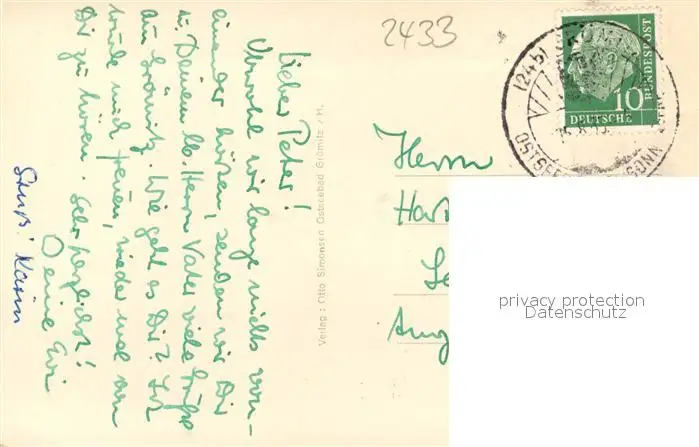 Lieber Peter!
Obwohl wir lange nichts von-
einander hörten, senden wir Dir
u. Deinem lb. Herrn Vater viele Grüße
aus Grömitz. Wie geht es Dir? Ich
würde mich freuen, wieder mal von
Dir zu hören. Sehr herzlichst!
Deine Evi
Gruß! Karin
Verlag: Otto Simonsen Ostseebad Grömitz / H.
2433
(24b) GRÖMITZ
OSTSEE
10
DEUTSCHE
BUNDESPOST
Herrn
privacy protection
Datenschutz